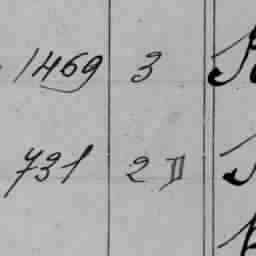 1469 3
731 2 II